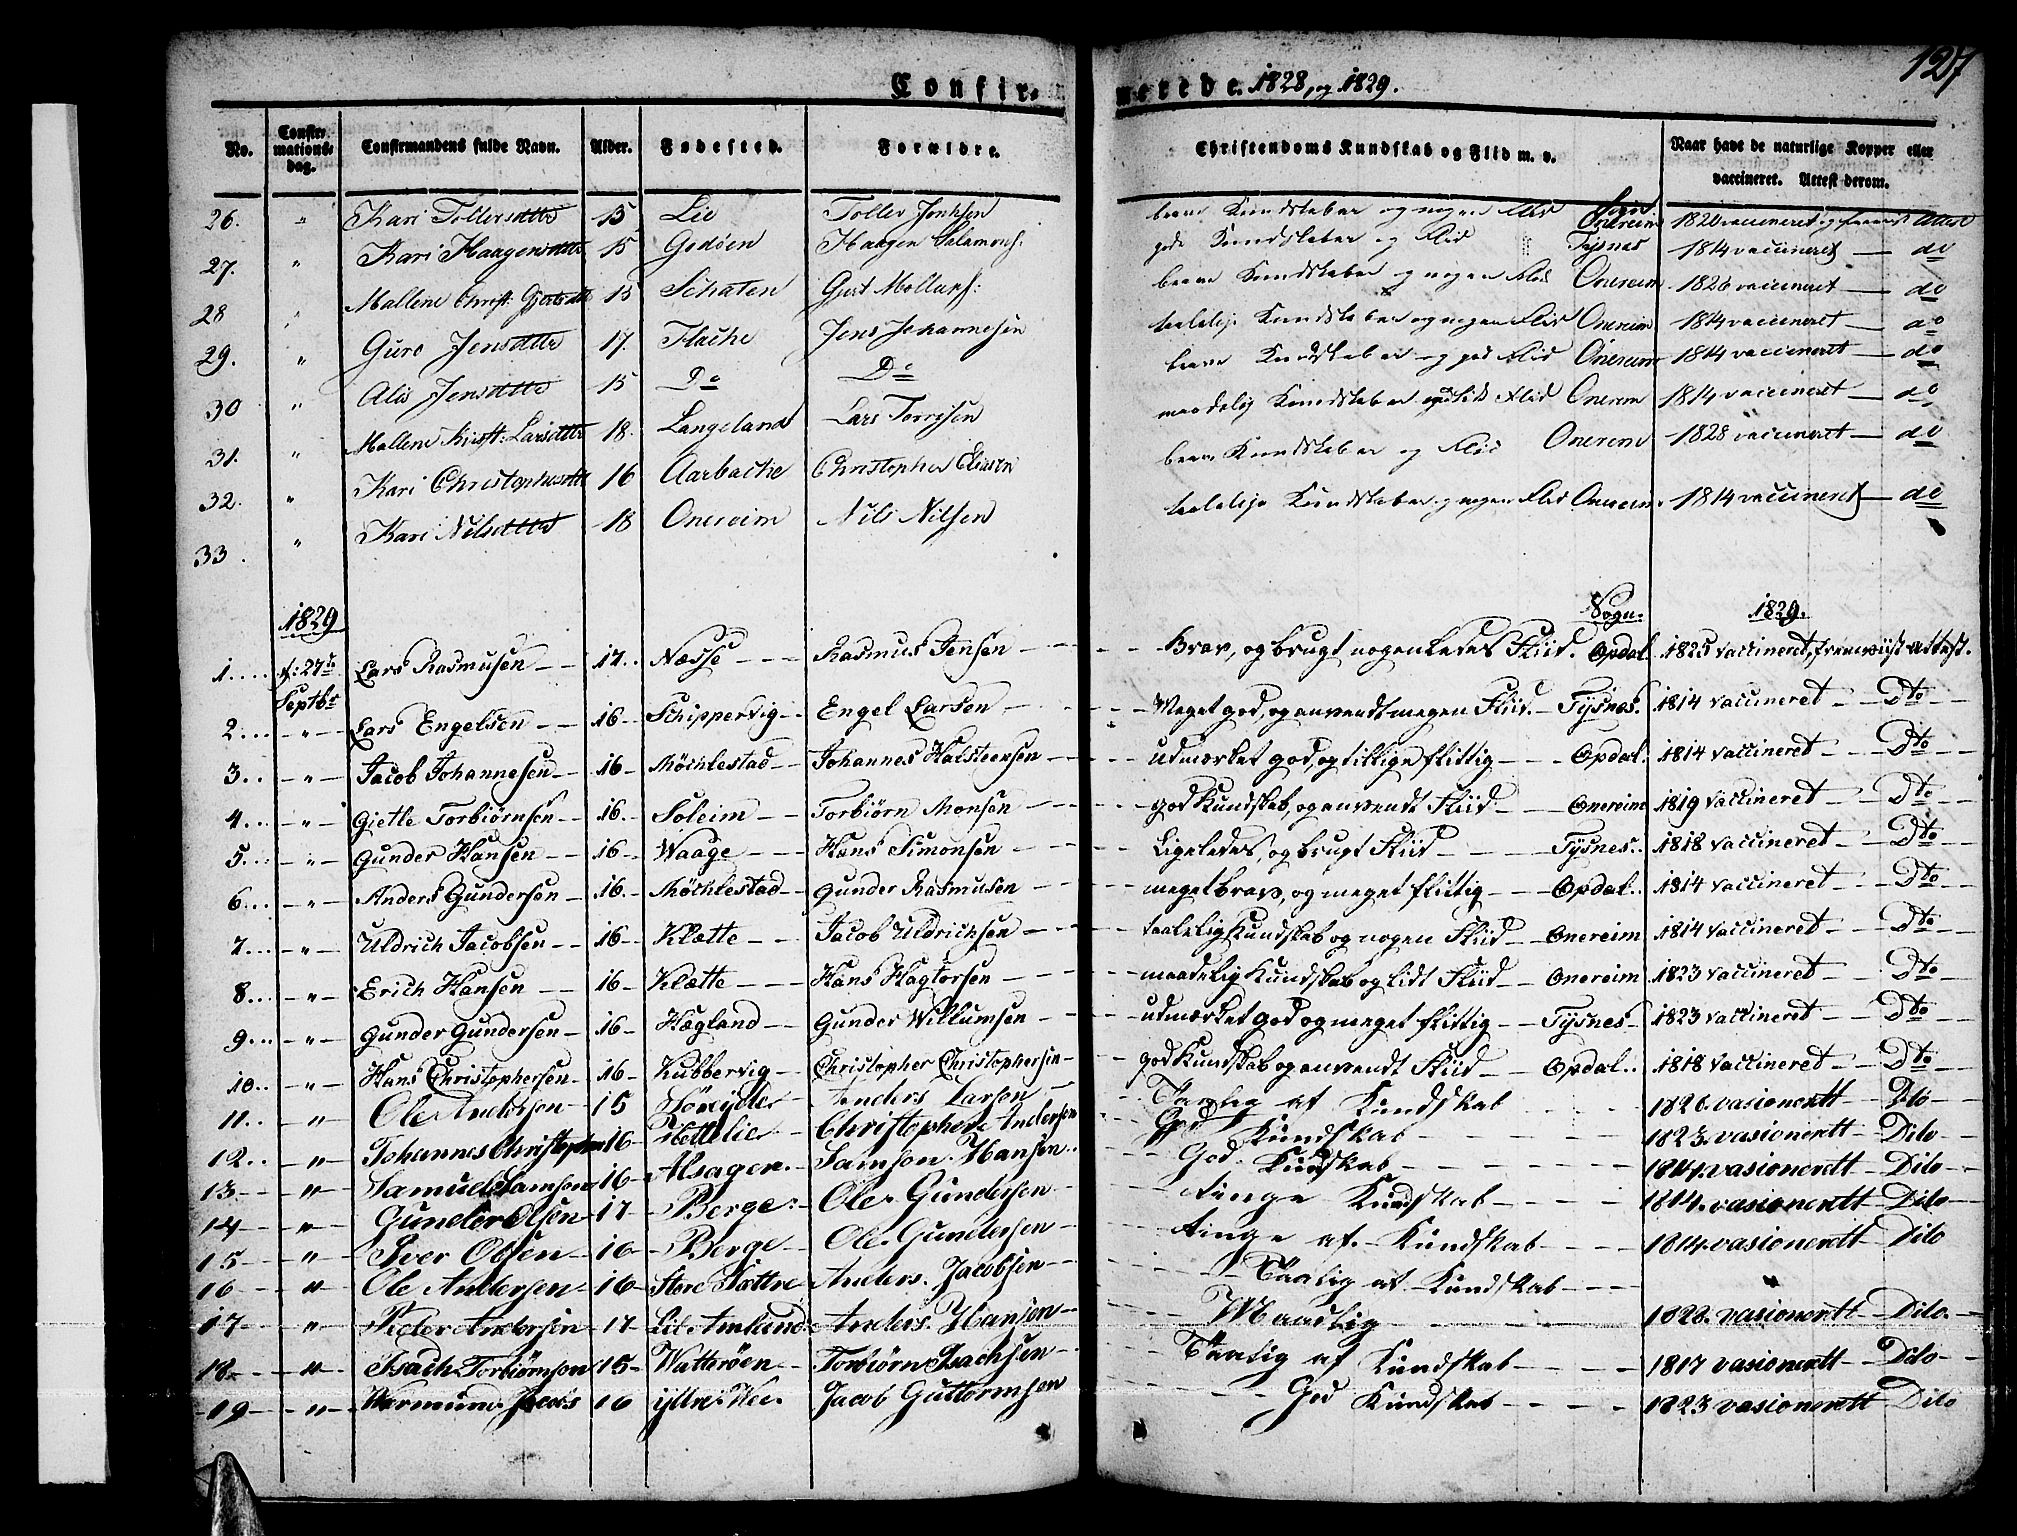 127
Confirmerede. 1828, og 1829.
No. Confirmationsdag. Confirmandens fulde Navn. Alder. Fødested. Forældre. Christendoms Kundskab og Flid m. v. Naar havt de naturlige Kopper eller vaccineret. Attest derom.
Sogn
26. " Kari Tollersdtter 15 Lie Toller brave Kundskaber og nogen Flid Onereim 1820 vaccineret og Attest
27. " Kari Haagensdtter 15 Godøen Haagen Salamons: gode Kundskaber og Flid Tysnes 1814 vaccineret — do
28 " Mallene Christ: Gjertsdtter 15 Schaten Gjert brave Kundskaber og nogen Flid Onereim 1826 vaccineret — do
29. " Guro Jensdtter 17. Flache Jens Johannesen taalelige Kundskaber og nogen Flid Onereim 1814 vaccineret — do
30 " Alis Jensdtter 15 Do Do brave Kundskaber og god Flid Onereim 1814 vaccineret — do
31. " Mallene Kirst: Larsdtter 18. Langeland Lars Torrisen maadelig Kundskaber og lidt Flid Onereim 1814 vaccineret — do
32. " Kari Christophersdtter 16 Aarbache Christopher Eliasen brave Kundskaber og Flid Onereim 1828 vacceneret — do
33. " Kari Nilsdtter 18 Onereim Nils Nilsen taalelige Kundskaber og nogen Flid Onereim. 1814 vaccineret — do
1829 Sogn. 1829.
1.... d: 27de Septbr Lars Rasmusen — 17.. Næsse - - - Rasmus Jensen - - - - Brav, og brugt nogenledes Fliid. Opdal. 1825 vaccineret, fremviist attest.
2... - " - Lars Engelsen - - 16 - Schippervig - Engel Larsen - - - - Meget god, og anvendt megen Fliid. - Tysnes. 1814 vaccineret - - Dto
3.. - " - Jacob Johannesen - 16 - Møchlestad - Johannes Halsteensen - - - - udmærket god, og tillige flittig - - - Opdal. 1814 vaccineret - - Dto - -
4... - " - Gietle Torbiørnsen - 16. - Soleim - - Torbiørn Monsen - - - - god Kundskab, og anvendt Fliid - - Onereim 1819 vaccineret - - Dto
5... - " - Gunder Hansen - - 16 - Waage - - - Hans Simonsen - - - - Ligeledes, og brugt Fliid - - - - Tysnes.. 1818 vaccineret - - Dto
6... - " - Anders Gundersen - 16. - Møchlestad - Gunder Rasmusen - - - - meget brav, og meget flittig - - - Opdal.. 1814 vaccineret - - Dto - -
7... - " - Uldrich Jacobsen - - 16 - Klætte - - Jacob Uldrichsen - - - - taalelig Kundskab og nogen Fliid - - Onereim 1814 vaccineret - - Dto
8... - " - Erich Hansen - - 16 - Klætte - - - Hans Hagtorsen - - - - maadelig Kundskab og lidt Fliid - - Onereim 1823 vaccineret - - Dto
9... - " - Gunder Gundersen - 16 - Hægland - - Gunder Willumsen - - - - udmærket god og meget flittig - - Tysnes - 1823 vaccineret - - Dto
10.. - " - Hans Christophersen - 16 - Kubbervig - Christopher Christophersen - - - god Kundskab og anvendt Fliid - - Opdal.. 1818 vaccineret - - Dto - -
11.. - " - Ole Andersen - 15 Anders Larsen - - Taalig af Kundskab - - - - 1826. vasionerett - Dito -
12.. - " - Johannes Christophersen 16 - Christopher Andersen - - God Kundskab - - - - - 1823. vasionerett - Dito -
13 - - " - Samuel Samsonsen - 16 - Alsager. - Samson. Hansen.. - - God Kundskab - - - - - vasionerett - Dito -
14 - - " - Gunder Olsen - 17 - Berge: - Ole Gundersen - - - ringe Kundskab - - - - 1814. vasionerett - Dito -
15 - - " Iver Olsen - 16 - Berge - Ole. Gundersen - - - ringe af. Kundskab - - - - 1814. vasionerett - Dito
16 - - " - Ole Andersen - 16 - Store Anders. Jacobsen - - - Taalig af Kundskab - - - "
17 - - " Peder Andersen - 17 - Lil. Amland - Anders. Hansen - - - Maadlig - - - - 1822. vasionerett - Dito. -
18. - - " - Isach Torbiørnson 15 - Watterøen - Torbiørn Isachsen - - - Taalig af Kundskab - - - - 1817 vasionerett - Dito -
19 - - " - Wermund. Jacobs 16 yttre. Wee. Jacob Guttormsen - - God Kundskab - - - - 1823 vasionerett - Dito